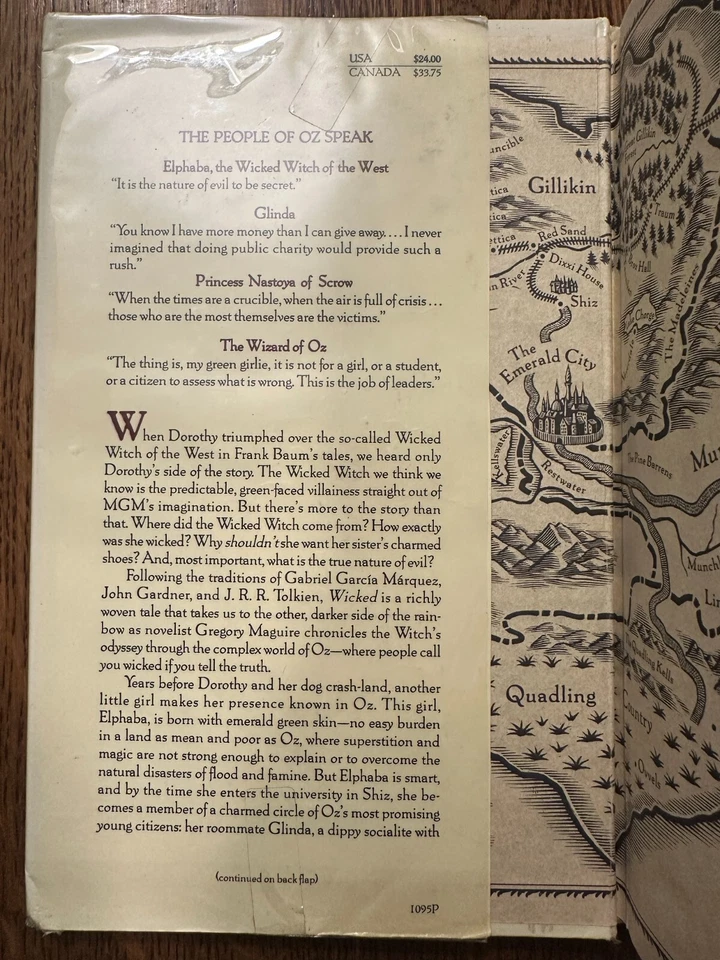 USA $24.00
CANADA $33.75
THE PEOPLE OF OZ SPEAK
Elphaba, the Wicked Witch of the West
“It is the nature of evil to be secret.”
Glinda
“You know I have more money than I can give away. . . . I never
imagined that doing public charity would provide such a
rush.”
Princess Nastoya of Scrow
“When the times are a crucible, when the air is full of crisis . . .
those who are the most themselves are the victims.”
The Wizard of Oz
“The thing is, my green girlie, it is not for a girl, or a student,
or a citizen to assess what is wrong. This is the job of leaders.”
When Dorothy triumphed over the so-called Wicked
Witch of the West in Frank Baum’s tales, we heard only
Dorothy’s side of the story. The Wicked Witch we think we
know is the predictable, green-faced villainess straight out of
MGM’s imagination. But there’s more to the story than
that. Where did the Wicked Witch come from? How exactly
was she wicked? Why shouldn’t she want her sister’s charmed
shoes? And, most important, what is the true nature of evil?
Following the traditions of Gabriel García Márquez,
John Gardner, and J. R. R. Tolkien, Wicked is a richly
woven tale that takes us to the other, darker side of the rain-
bow as novelist Gregory Maguire chronicles the Witch’s
odyssey through the complex world of Oz—where people call
you wicked if you tell the truth.
Years before Dorothy and her dog crash-land, another
little girl makes her presence known in Oz. This girl,
Elphaba, is born with emerald green skin—no easy burden
in a land as mean and poor as Oz, where superstition and
magic are not strong enough to explain or to overcome the
natural disasters of flood and famine. But Elphaba is smart,
and by the time she enters the university in Shiz, she be-
comes a member of a charmed circle of Oz’s most promising
young citizens: her roommate Glinda, a dippy socialite with
(continued on back flap)
1095P
Gillikin
Red Sand
Dixxi House
River
Shiz
The
Emerald City
Kellswater
Restwater
Quadling
Traum
The Madeleines
Pine Barrens
Quadling Kells
Country
Ovvels